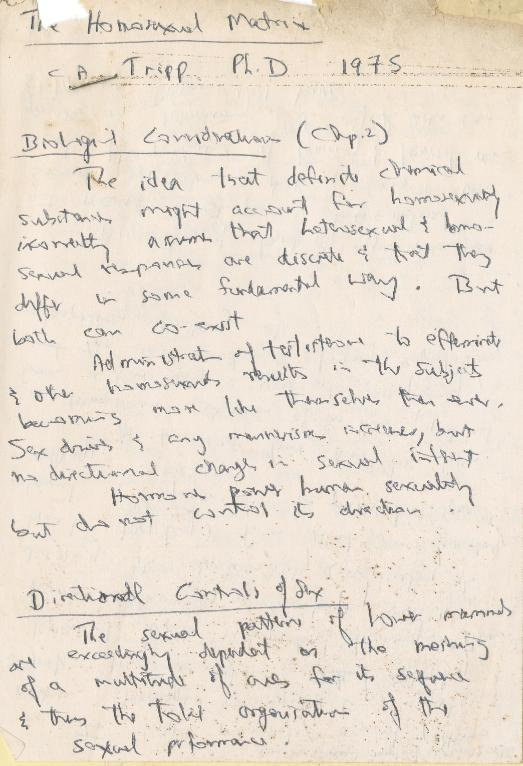 The Homosexual Matrix
C A Tripp Ph.D 1975
Biological Considerations (Chp.2)
The idea that definite chemical
substances might account for homosexuality
incorrectly assumes that heterosexual & homo-
sexual responses are discrete & that they
differ in some fundamental way. But
both can co-exist
Administration of testosterone to effeminate
& other homosexuals results in the subjects
becoming more like themselves than ever.
Sex drives & any mannerisms increases, but
no directional change in sexual interest
Hormones power human sexuality
but do not control its direction
Directional Controls of Sex
The sexual patterns of lower mammals
are exceedingly dependent on the meshing
of a multitude of cues for its sequence
& thus the total organisation of the
sexual performance.